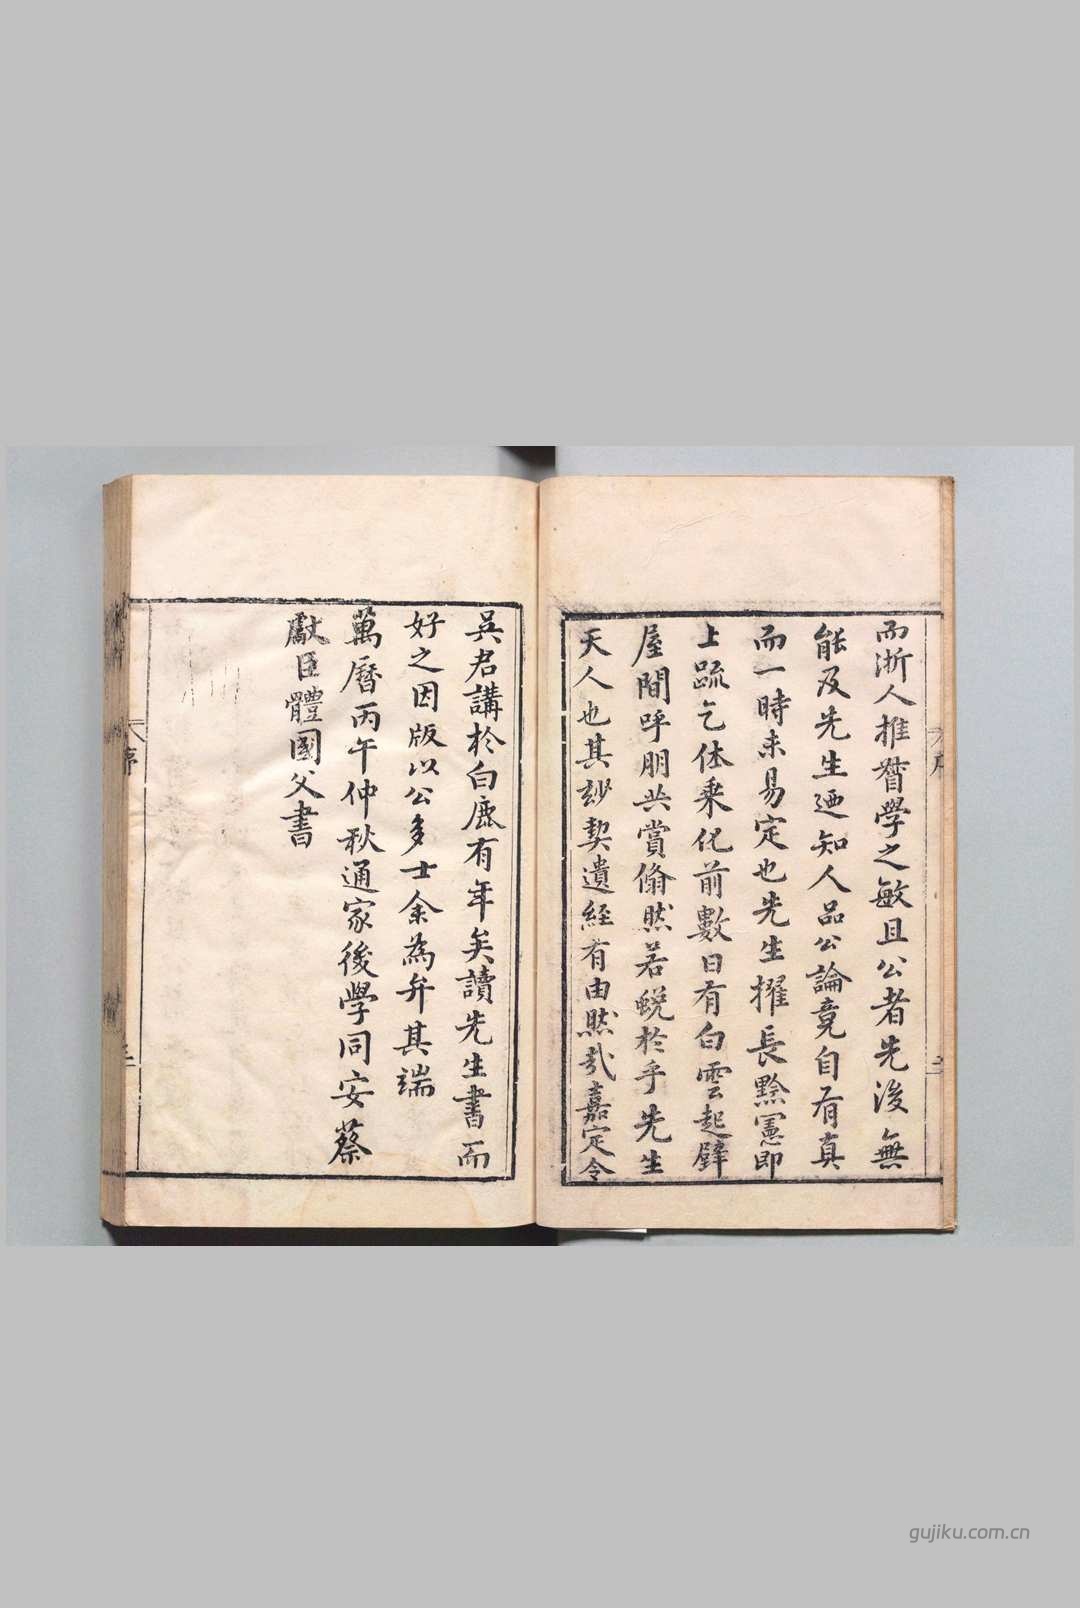 而浙人推督學之敏且公者先後無
能及先生迺知人品公論竟自有真
而一時未易定也先生擢長黔憲即
上疏乞休乘化前數日有白雲起躄
屋間呼朋共賞翛然若蛻於乎先生
天人也其玅契遺經有由然哉嘉定令
吳君講於白鹿有年矣讀先生書而
好之因版以公多士余為弁其端
萬曆丙午仲秋通家後學同安蔡
獻臣體國父書
序
三
gujiku.com.cn